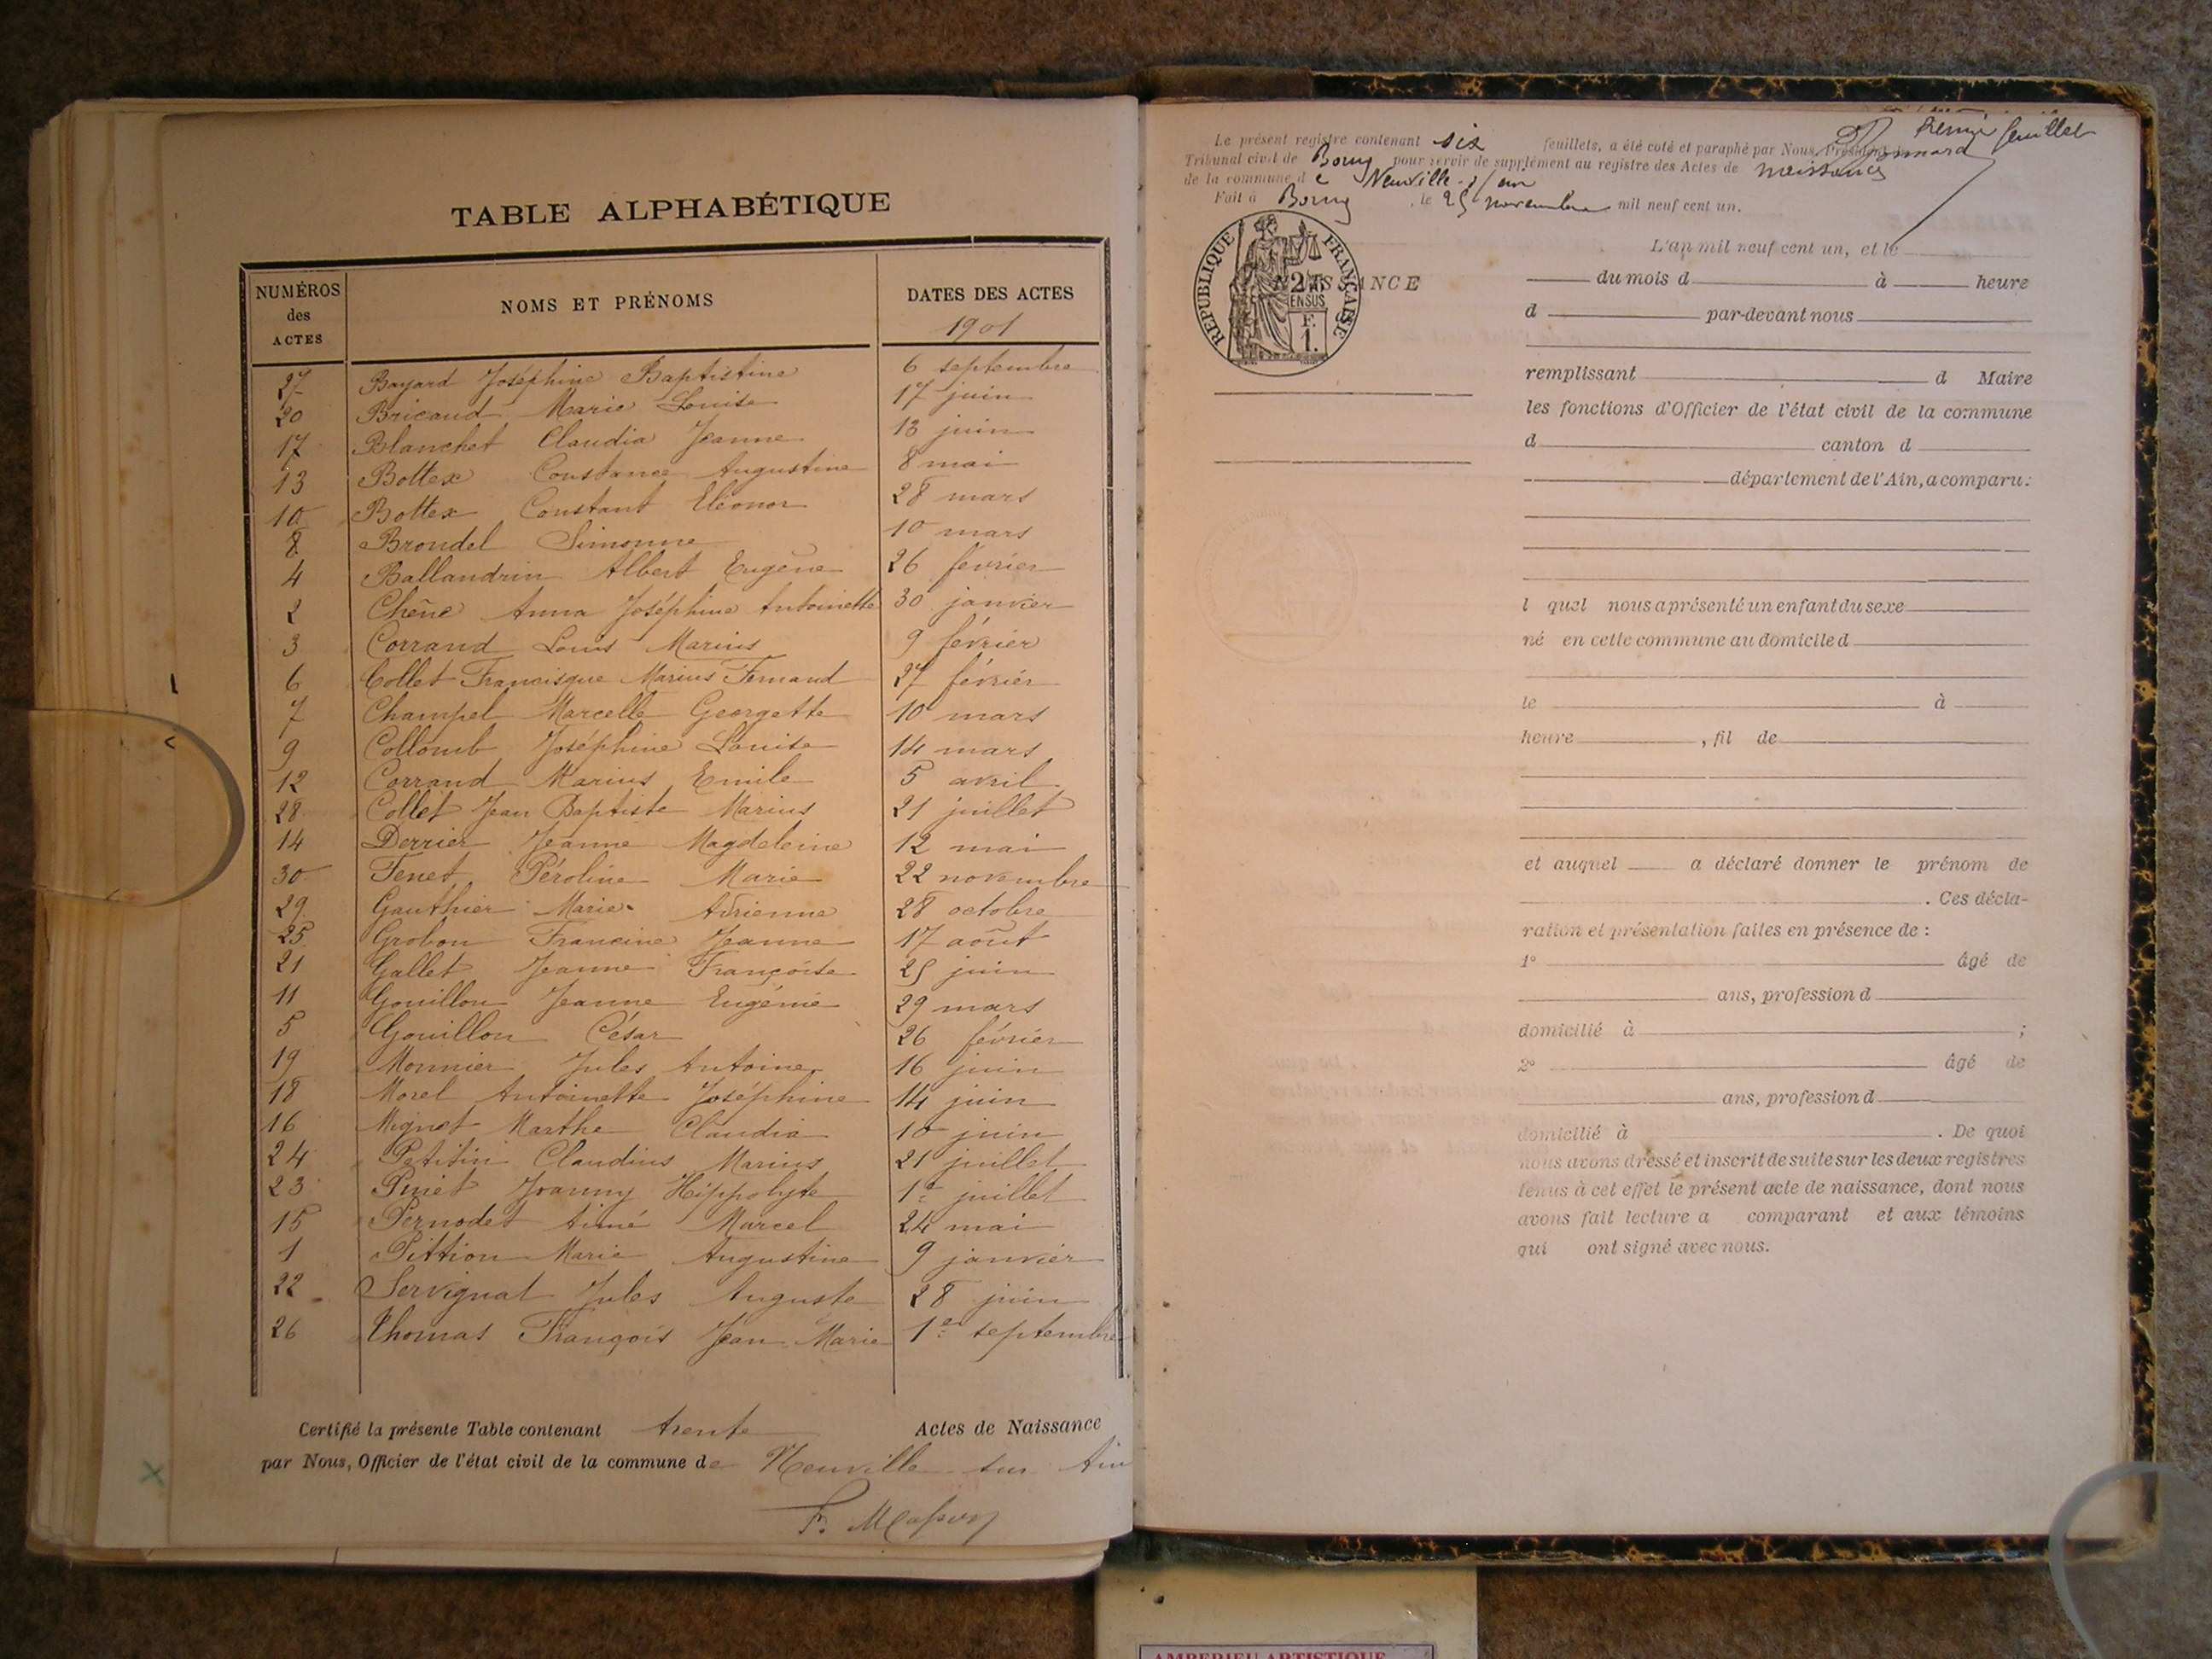 TABLE ALPHABÉTIQUE
NUMÉROS des ACTES NOMS ET PRÉNOMS DATES DES ACTES
1901
27 Bayard Joséphine Baptistine 6 septembre
20 Bricaud Marie Louise 17 juin
17 Blanchet Claudia Jeanne 13 juin
13 Bottex Constance Augustine 8 mai
10 Bottex Constant Eléonor 28 mars
8 Brondel Simonne 10 mars
4 Ballandrin Albert Eugène 26 février
2 Chêne Anna Joséphine Antoinette 30 janvier
3 Corrand Louis Marius 9 février
6 Collet Francisque Marius Fernand 27 février
7 Champel Marcelle Georgette 10 mars
9 Collomb Joséphine Louise 14 mars
12 Corrand Marius Emile 5 avril
28 Collet Jean Baptiste Marius 21 juillet
14 Derrier Jeanne Magdeleine 12 mai
30 Fenet Péroline Marie 22 novembre
29 Gauthier Marie Adrienne 28 octobre
25 Grobon Francine Jeanne 17 août
21 Gallet Jeanne Françoise 25 juin
11 Gouillon Jeanne Eugénie 29 mars
5 Gouillon César 26 février
19 Monnier Jules Antoine 16 juin
18 Morel Antoinette Joséphine 14 juin
16 Mignot Marthe Claudia 10 juin
24 Petitin Claudius Marius 21 juillet
23 Joanny Hippolyte 1er juillet
15 Pernodet Aimé Marcel 24 mai
1 Pittion Marie Augustine 9 janvier
22 Servignat Jules Auguste 28 juin
26 Thomas François Jean Marie 1er septembre
Certifié la présente Table contenant trente Actes de Naissance
par Nous, Officier de l'état civil de la commune de Neuville sur Ain
feuillet
Le présent registre contenant six feuillets, a été coté et paraphé par Nous, Président du
Tribunal civil de Bourg pour servir de supplément au registre des Actes de naissances
de la commune de Neuville-s/ain
Fait à Bourg, le 25 novembre mil neuf cent un.
RÉPUBLIQUE FRANÇAISE
2/10
EN SUS
F.
1.
NAISSANCE
L'an mil neuf cent un, et le
du mois d à heure
d par-devant nous
remplissant d Maire
les fonctions d'Officier de l'état civil de la commune
d canton d
département de l'Ain, a comparu:
l quel nous a présenté un enfant du sexe
né en cette commune au domicile d
le à
heure , fil de
et auquel a déclaré donner le prénom de
. Ces décla-
ration et présentation faites en présence de :
1° âgé de
ans, profession d
domicilié à ;
2° âgé de
ans, profession d
domicilié à . De quoi
nous avons dressé et inscrit de suite sur les deux registres
tenus à cet effet le présent acte de naissance, dont nous
avons fait lecture a comparant et aux témoins
qui ont signé avec nous.
AMBERIEU ARTISTIQUE